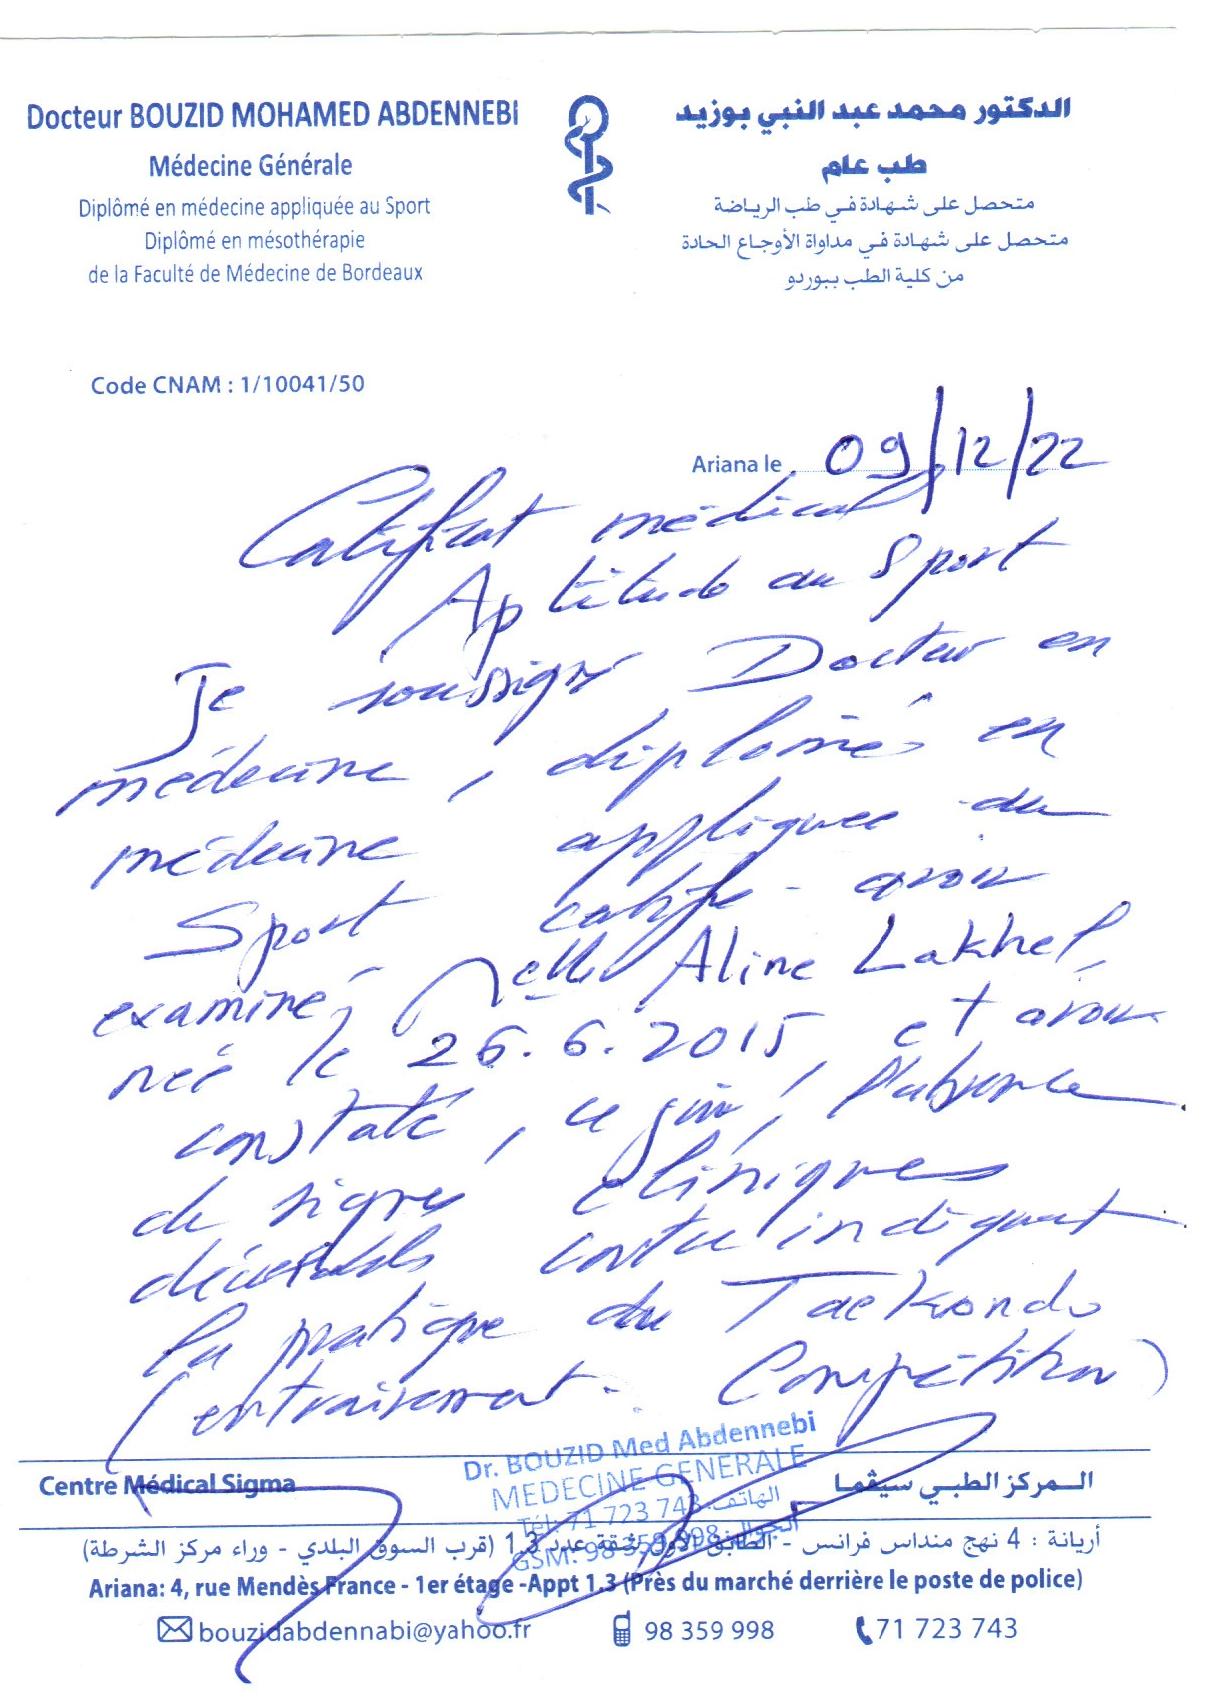 Docteur BOUZID MOHAMED ABDENNEBI
Médecine Générale
Diplômé en médecine appliquée au Sport
Diplômé en mésothérapie
de la Faculté de Médecine de Bordeaux
الدكتور محمد عبد النبي بوزيد
طب عام
متحصل على شهادة في طب الرياضة
متحصل على شهادة في مداواة الأوجاع الحادة
من كلية الطب ببوردو
Code CNAM : 1/10041/50
Ariana le 09/12/22
Certificat médical
Aptitude au Sport
Je soussigné Docteur en
médecine, diplômé en
médecine appliquée au
Sport certifie avoir
examiné, Melle Aline Lakhel,
née le 26.6.2015 et avoir
constaté, ce jour, l'absence
de signes cliniques
décelables contre indiquant
la pratique du Taekondo
(entrainement - Compétition)
Dr. BOUZID Med Abdennebi
MEDECINE GENERALE
Tél: 71 723 743 :الهاتف
GSM: 98 359 998 :الجوال
Centre Médical Sigma
المركز الطبي سيڤما
أريانة : 4 نهج منداس فرانس - الطابق الأول شقة عدد 1.3 (قرب السوق البلدي - وراء مركز الشرطة)
Ariana: 4, rue Mendès France - 1er étage -Appt 1.3 (Près du marché derrière le poste de police)
bouzidabdennabi@yahoo.fr 98 359 998 71 723 743